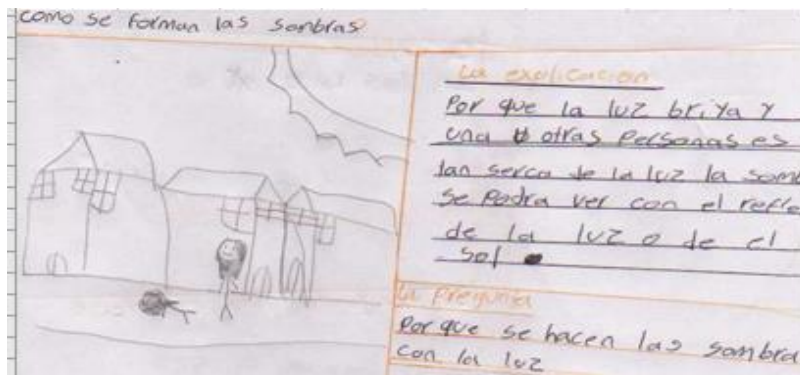 como se forman las sombras
La explicacion
Por que la luz briya y
una otras personas es
tan serca de la luz la somb
se podra ver con el refle
de la luz o de el
sol
La pregunta
Por que se hacen las sombra
con la luz